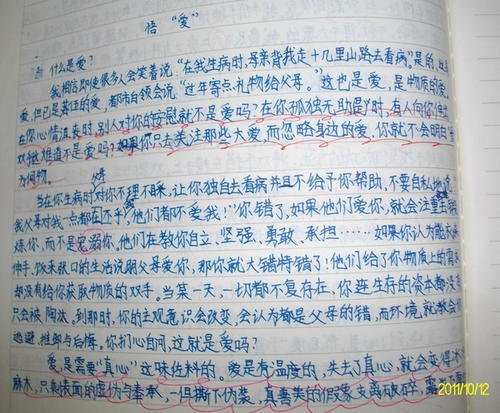 悟 “爱”
什么是爱？
我相信即使很多人会笑着说：“在我生病时，爸亲背我走十几里山路去看病”是的，这
爱，但已是甚征的爱，都市白领会说：“过年寄点礼物给父母。”这也是爱，是物质的爱。
在你心情沮丧时，别人对你的安慰就不是爱吗？在你孤独无助时，有人向你伸出
双难道不是爱吗？如果你只去关注那些大爱，而忽略身边的爱，你就不会明白
为何物。
当在你生病时父母对你不理不睬，让你独自去看病并且不给予你帮助，不要自私地说：
我父母对我一点都在不乎，他们都不爱我！”你错了，如果他们爱你，就会注重去锻
炼你，而不是宠溺你，他们在教你自立、坚强、勇敢、承担……如果你认为
伸手，饭来张口的生活说明父母爱你，那你就大错特错了：他们给了你物质上的
却没有给你获取物质的双手。当某一天，一切都不复存在，你连生存的资本都没有
只会被 淘汰。到那时，你的主观意识会改变，会认为都是父母的错，而环境就教会
逃避、推卸与后悔，你扪心自问，这就是爱吗？
爱，是需要“真心”这味佐料的。爱是有温度的，失去了真心，就会变得冰
麻木，只剩表面的虚伪与奉承，一但撕下伪装，真善美的假象支离破碎，露
2011/10/12